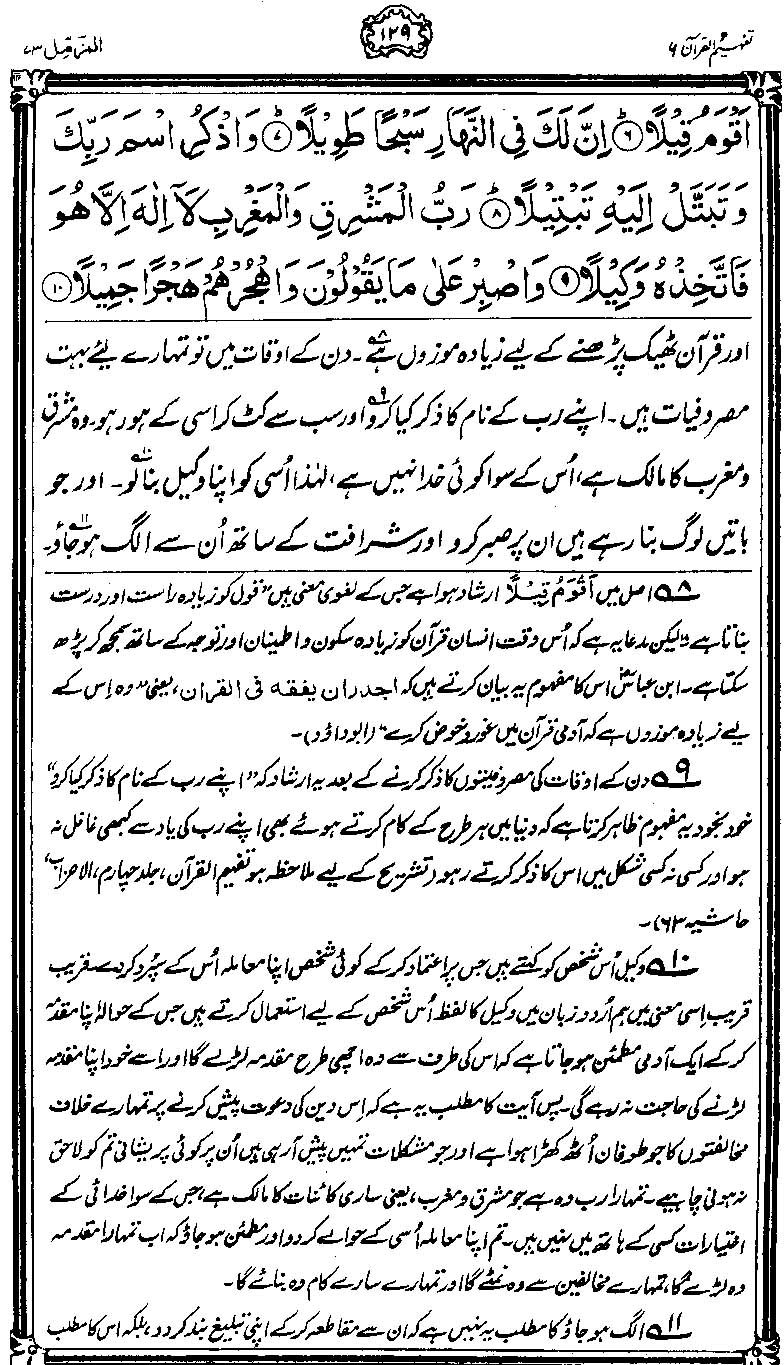 تفہیم القرآن ۶
۱۲۹
المزمل ۷۳
اَقْوَمُ قِيْلًا ۶ اِنَّ لَكَ فِي النَّهَارِ سَبْحًا طَوِيْلًا ۷ وَاذْكُرِ اسْمَ رَبِّكَ
وَتَبَتَّلْ اِلَيْهِ تَبْتِيْلًا ۸ رَبُّ الْمَشْرِقِ وَالْمَغْرِبِ لَآ اِلٰهَ اِلَّا هُوَ
فَاتَّخِذْهُ وَكِيْلًا ۹ وَاصْبِرْ عَلٰى مَا يَقُوْلُوْنَ وَاهْجُرْهُمْ هَجْرًا جَمِيْلًا ۱۰
اور قرآن ٹھیک پڑھنے کے لیے زیادہ موزوں ہے۸۔ دن کے اوقات میں تو تمہارے لیے بہت
مصروفیات ہیں۔ اپنے رب کے نام کا ذکر کیا کرو۹ اور سب سے کٹ کر اسی کے ہو رہو۔ وہ مشرق
و مغرب کا مالک ہے، اُس کے سوا کوئی خدا نہیں ہے، لہٰذا اُسی کو اپنا وکیل بنا لو۱۰۔ اور جو
باتیں لوگ بنا رہے ہیں ان پر صبر کرو اور شرافت کے ساتھ اُن سے الگ ہو جاؤ۱۱۔
۸ اصل میں اَقْوَمُ قِيْلًا ارشاد ہوا ہے جس کے لغوی معنی ہیں "قول کو زیادہ راست اور درست
بناتا ہے" لیکن مدعا یہ ہے کہ اُس وقت انسان قرآن کو زیادہ سکون و اطمینان اور توجہ کے ساتھ سمجھ کر پڑھ
سکتا ہے۔ ابن عباسؓ اس کا مفہوم یہ بیان کرتے ہیں کہ اجدر ان یفقہ فی القران، یعنی "وہ اِس کے
لیے زیادہ موزوں ہے کہ آدمی قرآن میں غور و خوض کرے" (ابوداؤد)۔
۹ دن کے اوقات کی مصروفیتوں کا ذکر کرنے کے بعد یہ ارشاد کہ "اپنے رب کے نام کا ذکر کیا کرو"
خود بخود یہ مفہوم ظاہر کرتا ہے کہ دنیا میں ہر طرح کے کام کرتے ہوئے بھی اپنے رب کی یاد سے کبھی غافل نہ
ہو اور کسی نہ کسی شکل میں اس کا ذکر کرتے رہو (تشریح کے لیے ملاحظہ ہو تفہیم القرآن، جلد چہارم، الاحزاب،
حاشیہ ۶۳)۔
۱۰ وکیل اُس شخص کو کہتے ہیں جس پر اعتماد کر کے کوئی شخص اپنا معاملہ اُس کے سپرد کر دے۔ قریب
قریب اِسی معنی میں ہم اُردو زبان میں وکیل کا لفظ اُس شخص کے لیے استعمال کرتے ہیں جس کے حوالہ اپنا مقدمہ
کر کے ایک آدمی مطمئن ہو جاتا ہے کہ اس کی طرف سے وہ اچھی طرح مقدمہ لڑ لے گا اور اسے خود اپنا مقدمہ
لڑنے کی حاجت نہ رہے گی۔ پس آیت کا مطلب یہ ہے کہ اِس دین کی دعوت پیش کرنے پر تمہارے خلاف
مخالفتوں کا جو طوفان اُٹھ کھڑا ہوا ہے اور جو مشکلات تمہیں پیش آ رہی ہیں اُن پر کوئی پریشانی تم کو لاحق
نہ ہونی چاہیے۔ تمہارا رب وہ ہے جو مشرق و مغرب، یعنی ساری کائنات کا مالک ہے، جس کے سوا خدائی کے
اختیارات کسی کے ہاتھ میں نہیں ہیں۔ تم اپنا معاملہ اُسی کے حوالے کر دو اور مطمئن ہو جاؤ کہ اب تمہارا مقدمہ
وہ لڑے گا، تمہارے مخالفین سے وہ نمٹے گا اور تمہارے سارے کام وہ بنائے گا۔
۱۱ الگ ہو جاؤ کا مطلب یہ نہیں ہے کہ ان سے مقاطعہ کر کے اپنی تبلیغ بند کر دو، بلکہ اس کا مطلب